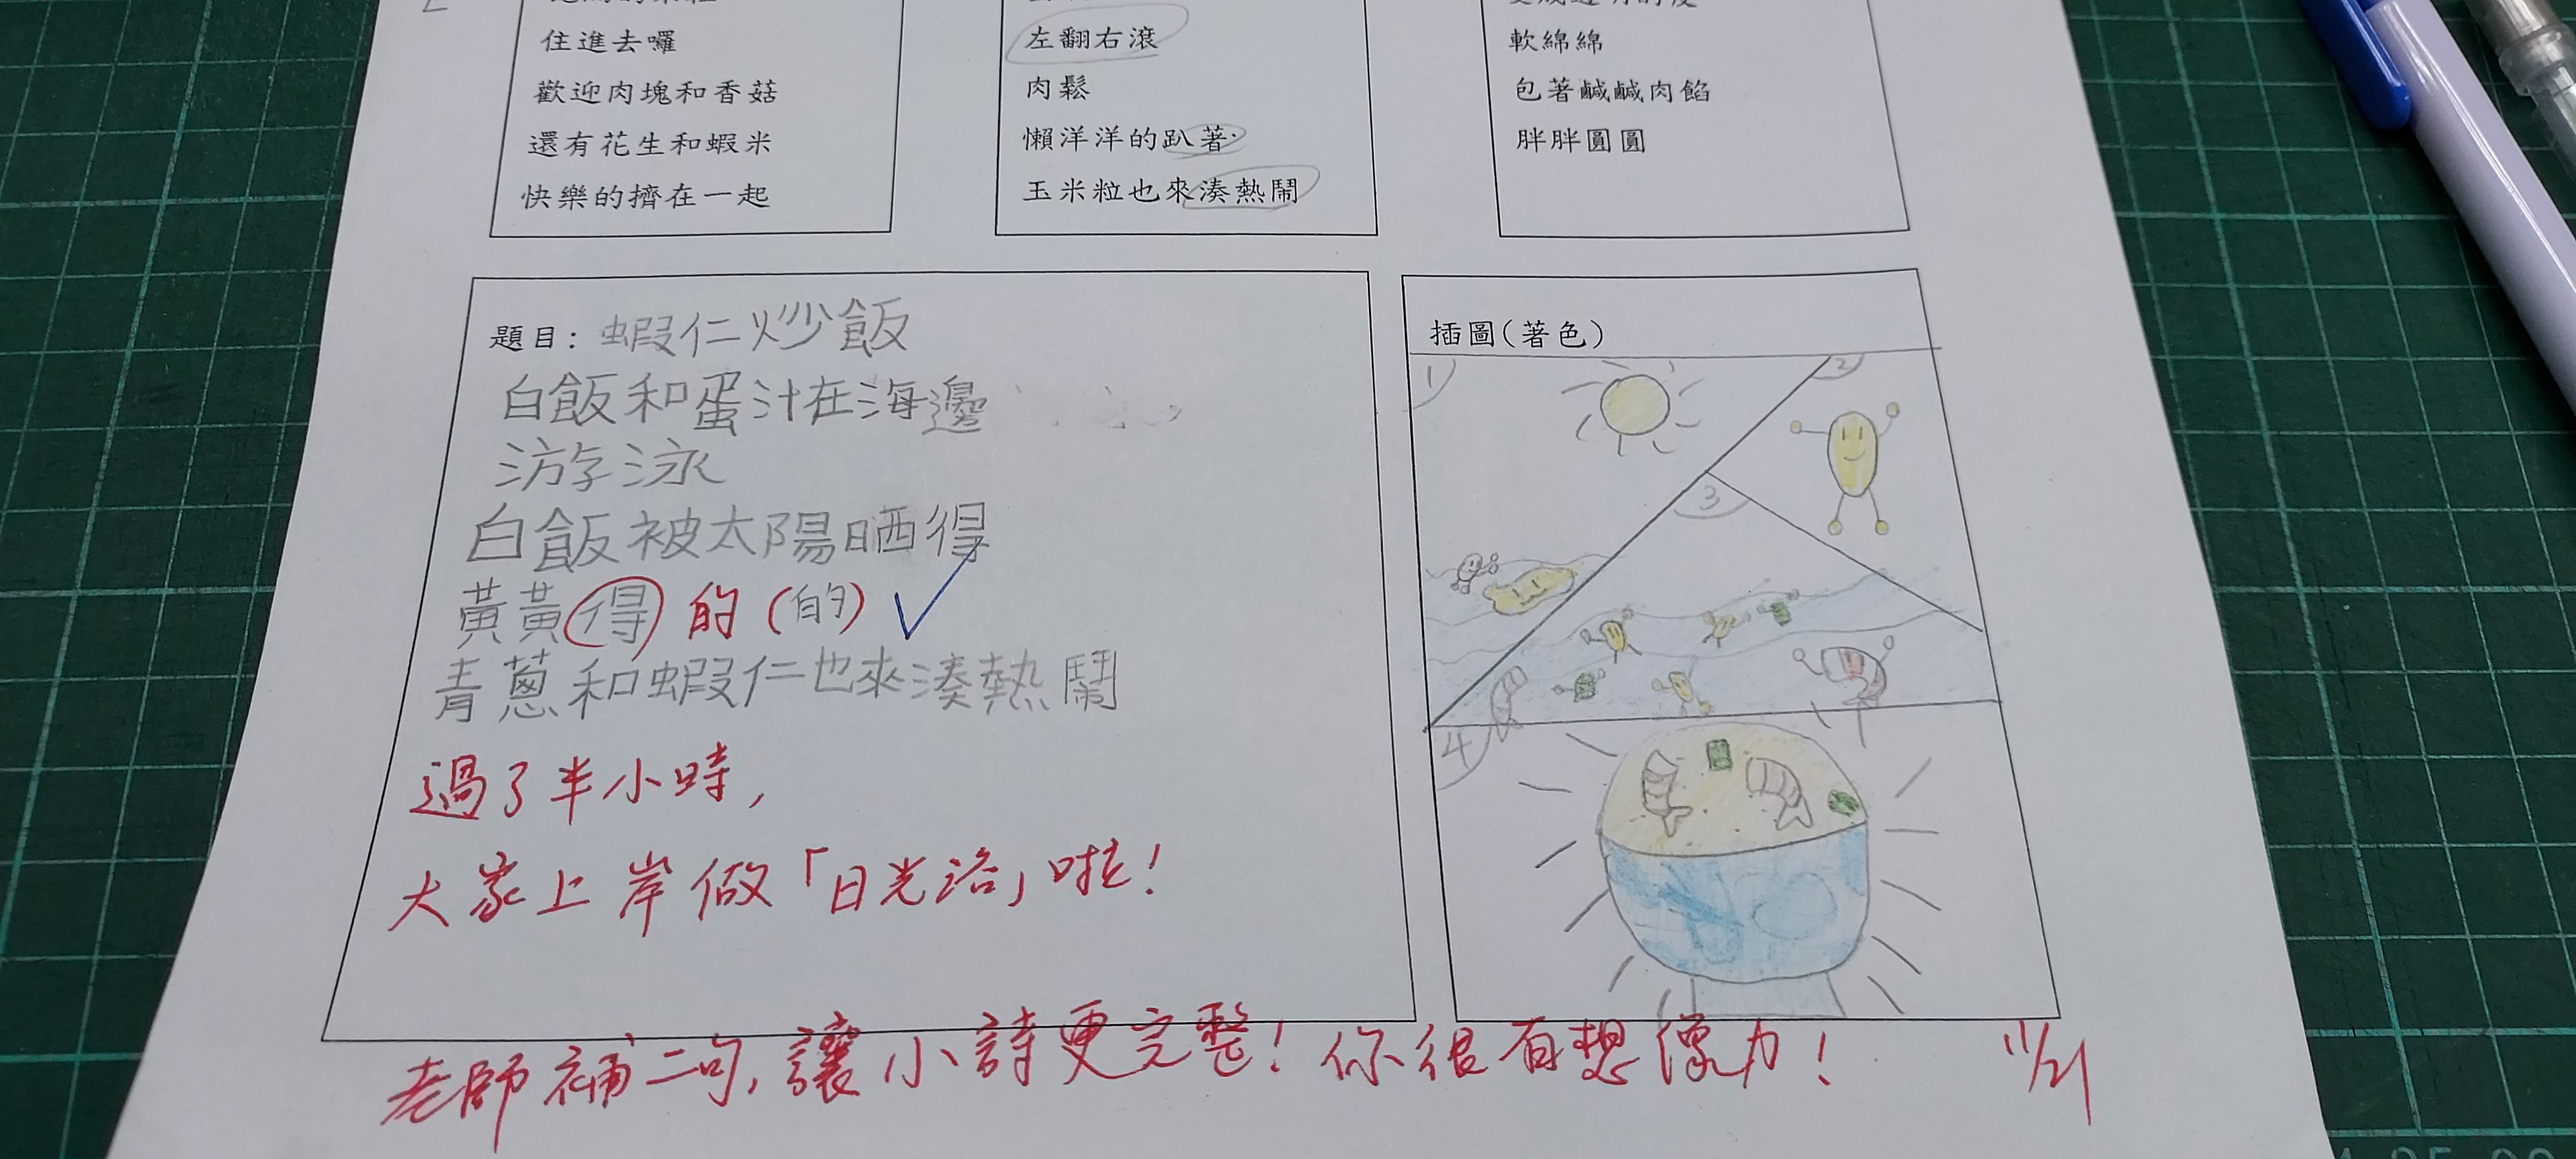 住進去囉
歡迎肉塊和香菇
還有花生和蝦米
快樂的擠在一起
左翻右滾
肉鬆
懶洋洋的趴著
玉米粒也來湊熱鬧
軟綿綿
包著鹹鹹肉餡
胖胖圓圓
題目：蝦仁炒飯
白飯和蛋汁在海邊
游泳
白飯被太陽晒得
黃黃得 的 (的)
青蔥和蝦仁也來湊熱鬧
過了半小時，
大家上岸做「日光浴」啦！
插圖(著色)
1
2
3
4
老師補二句，讓小詩更完整！你很有想像力！
11/21